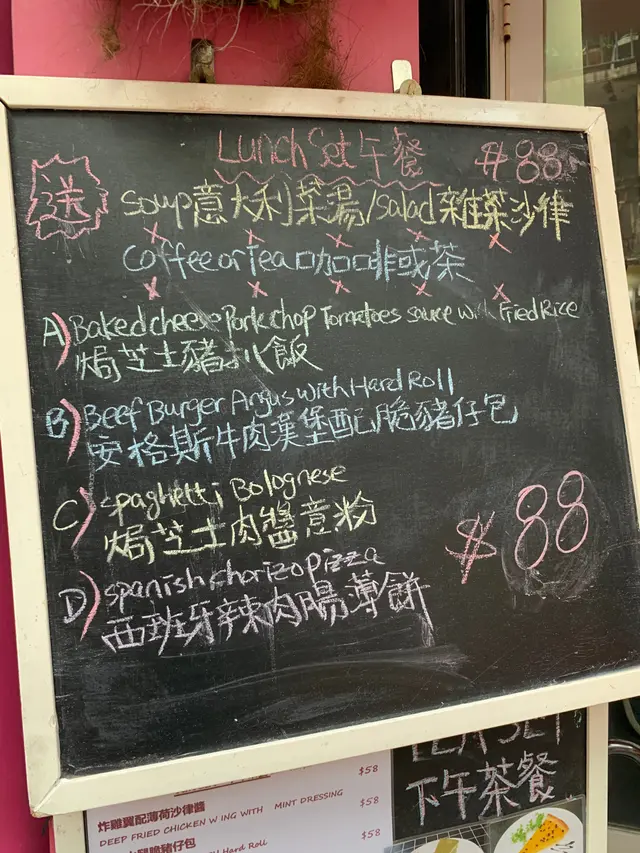 Lunch Set 午餐 $88
送
Soup意大利菜湯/Salad雜菜沙律
Coffee or Tea 咖啡或茶
A) Baked cheese Pork chop Tomatoes sauce with Fried Rice
焗芝士豬扒飯
B) Beef Burger Angus with Hard Roll
安格斯牛肉漢堡配脆豬仔包
C) Spaghetti Bolognese
焗芝士肉醬意粉
$88
D) Spanish chorizo pizza
西班牙辣肉腸薄餅
TEA SET
下午茶餐
$58
炸雞翼配薄荷沙律醬
DEEP FRIED CHICKEN WING WITH MINT DRESSING
$58
脆豬仔包
Hard Roll
$58